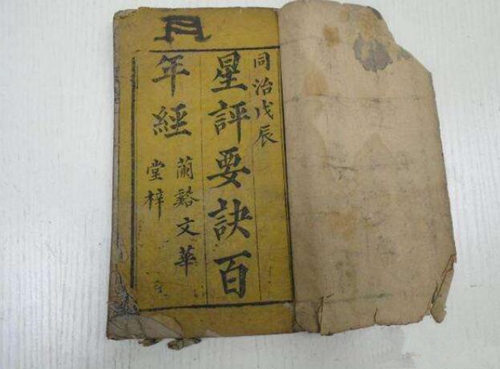 同治戊辰
星評要訣百
年經
蘭谿文華
堂梓